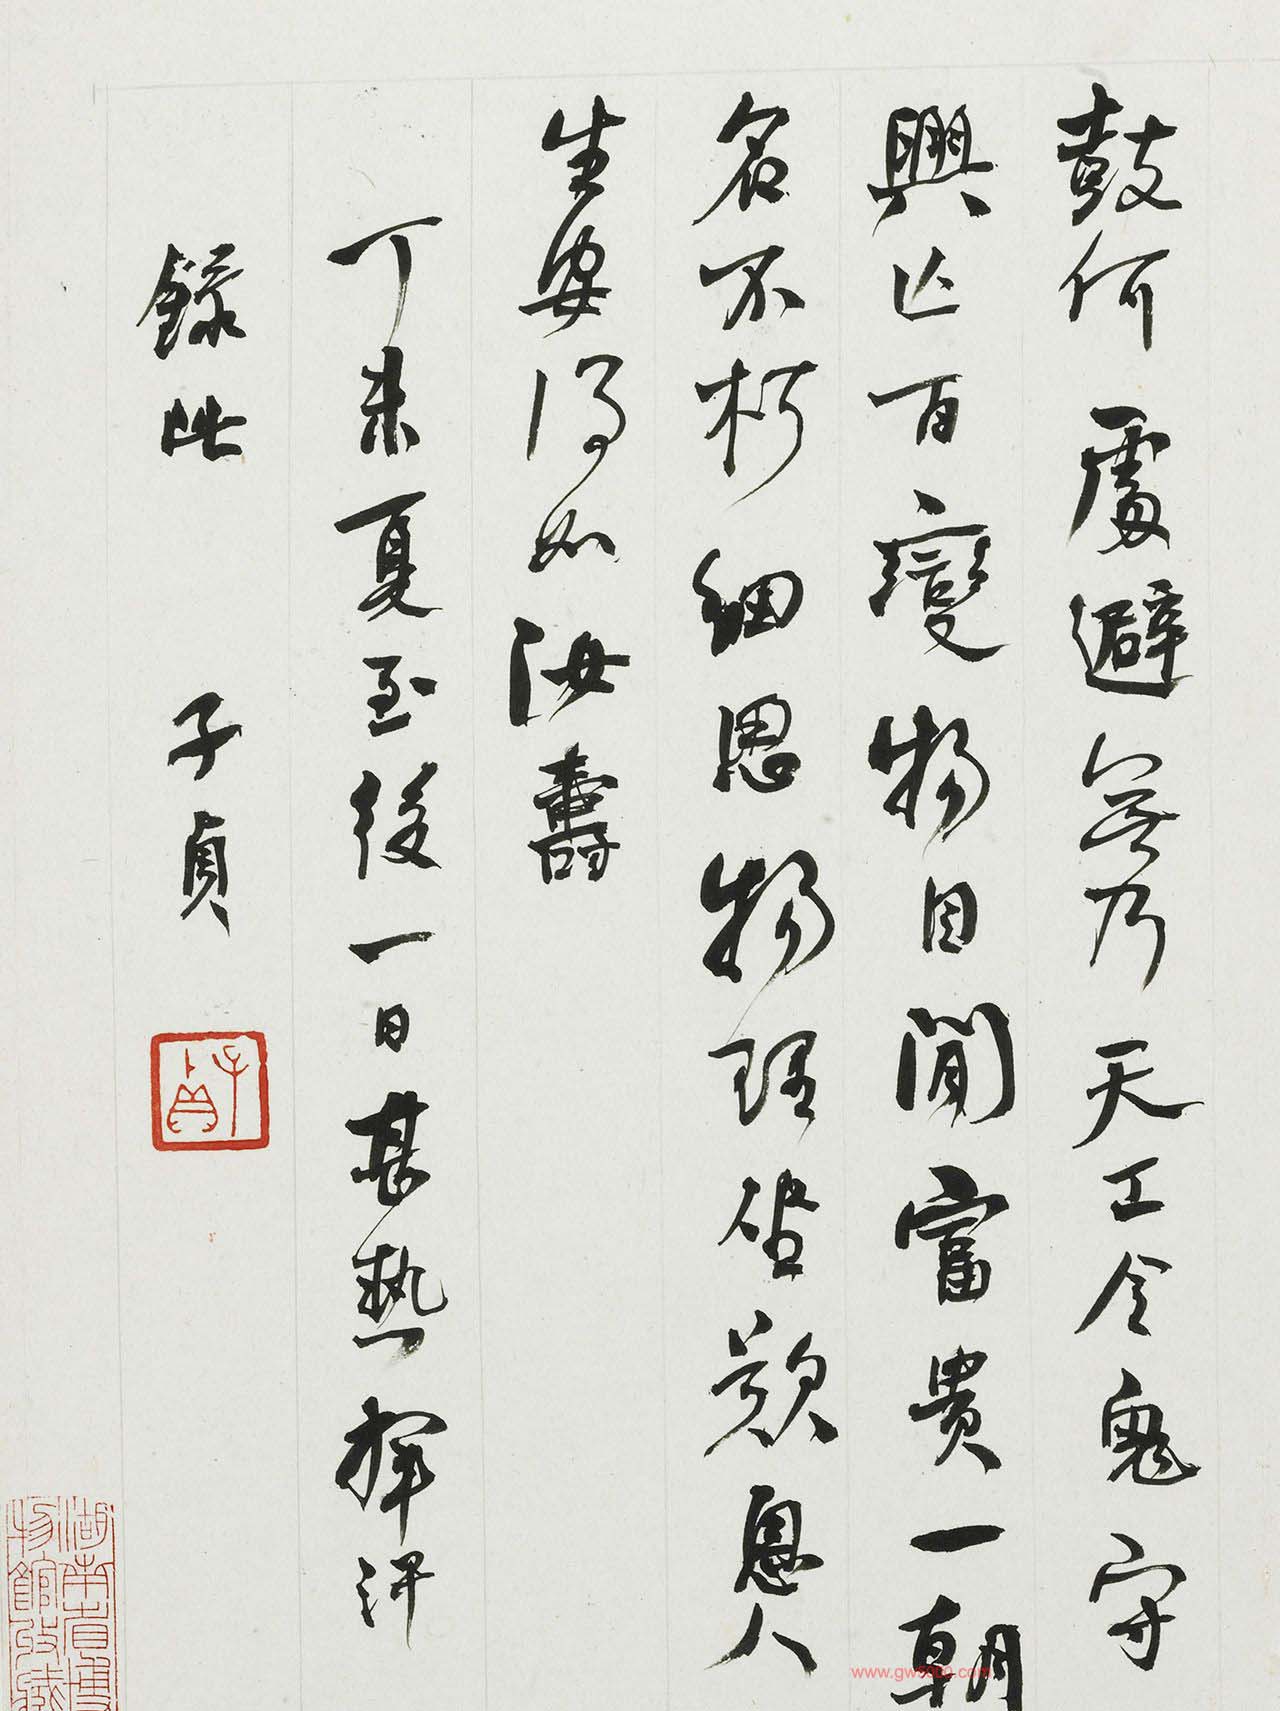 鼓何處避無乃天工令鬼守
興亡百變物自閒富貴一朝
名不朽細思物理坐歎息人
生安得如汝壽
丁未夏至後一日甚熱揮汗
錄此 子貞
子貞
湖南省博
物館收藏
www.gw5000.com